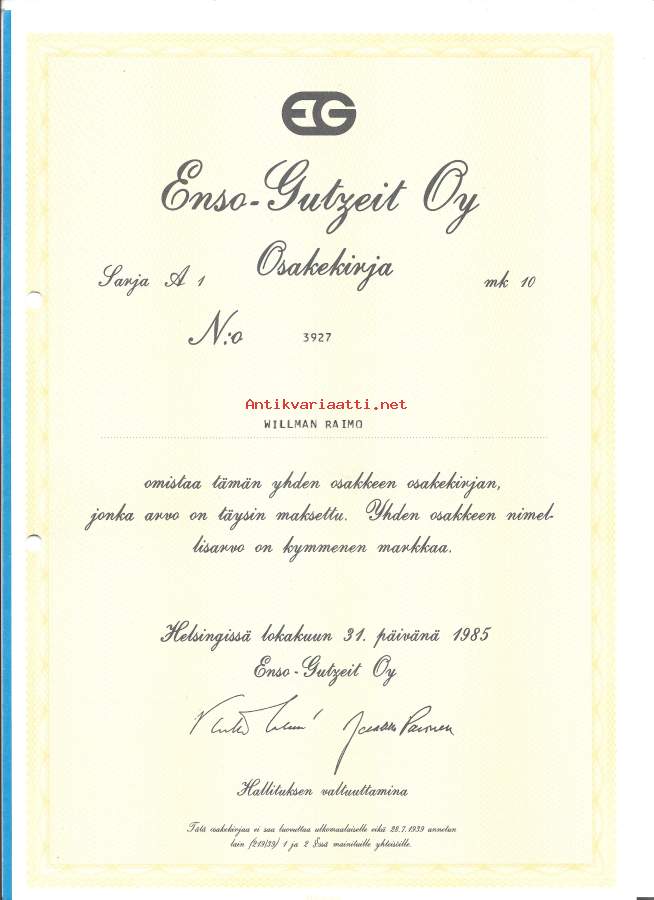 EG
Enso-Gutzeit Oy
Osakekirja
Sarja A 1
mk 10
N:o 3927
Antikvariaatti.net
WILLMAN RAIMO
omistaa tämän yhden osakkeen osakekirjan,
jonka arvo on täysin maksettu. Yhden osakkeen nimel-
lisarvo on kymmenen markkaa.
Helsingissä lokakuun 31. päivänä 1985
Enso-Gutzeit Oy
Hallituksen valtuuttamina
Tätä osakekirjaa ei saa luovuttaa ulkomaalaiselle eikä 28.7.1939 annetun
lain (219/39) 1 ja 2 §:ssä mainituille yhteisöille.